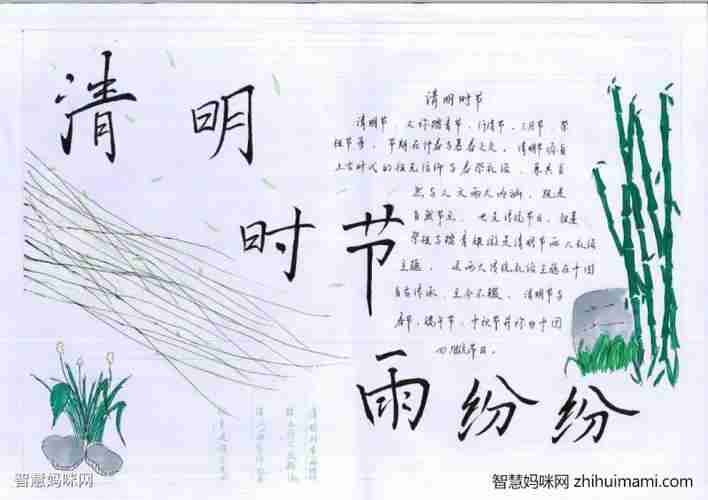 清明
时节
雨纷纷
清明时节
清明节,又称踏青节、行清节、三月节、祭
祖节等,节期在仲春与暮春之交。清明节源自
上古时代的祖先信仰与春祭礼俗,兼具自
然与人文两大内涵,既是
自然节点,也是传统节日。扫墓
祭祖与踏青郊游是清明节两大礼俗
主题,这两大传统礼俗主题在中国
自古传承,至今不辍。清明节与
春节、端午节、中秋节并称为中国
四大传统节日。
智慧妈咪网
智慧妈咪网 zhihuimami.com